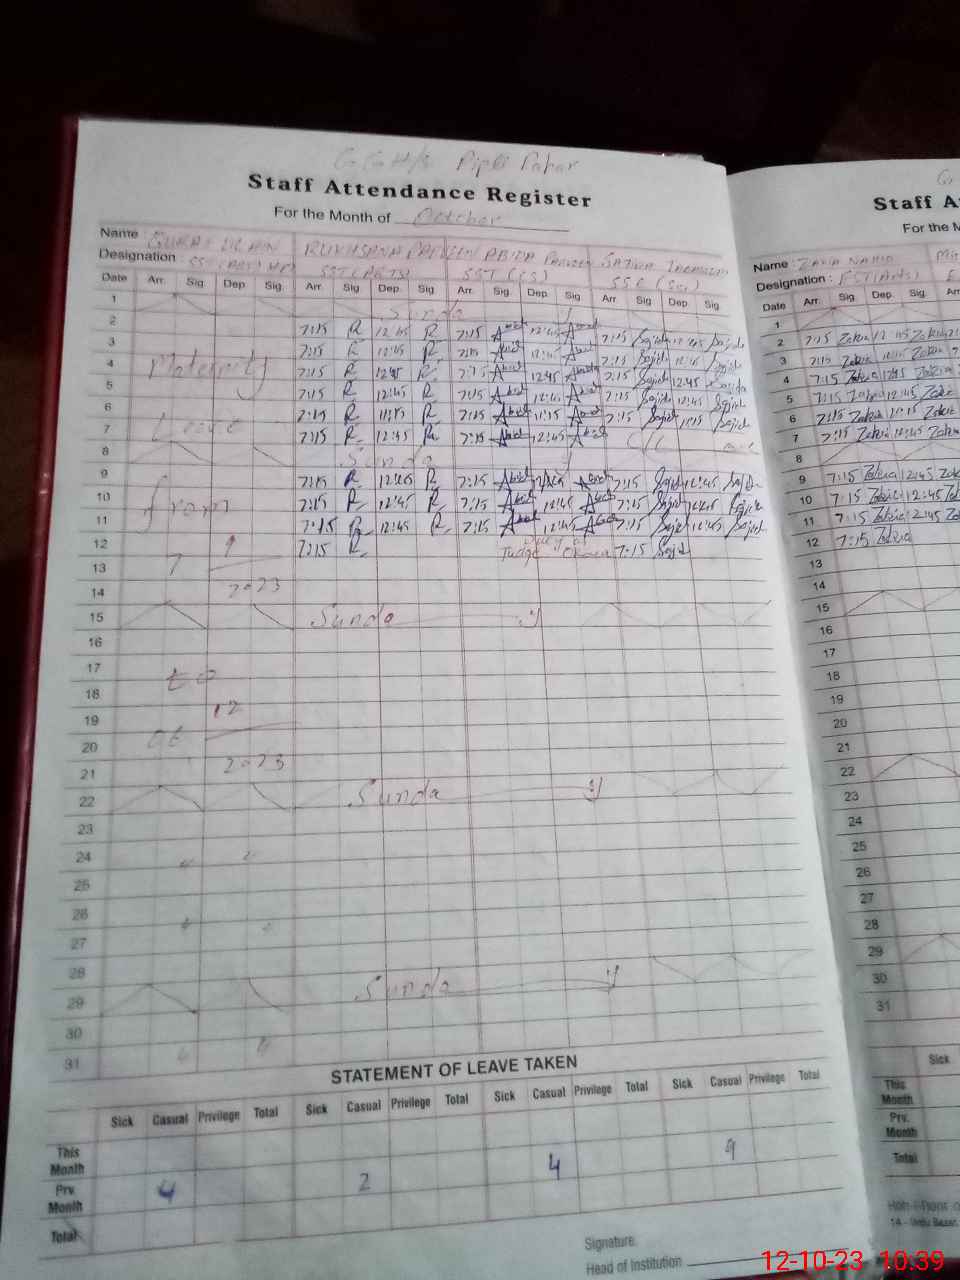 GGH/S Pipli Pahar
Staff Attendance Register
For the Month of October
Name : RUKHSANA PARVEEN ABIDA Parveen SAJIDA
Designation : SST (ARTS) SST (CS) SSE (Sci)
Date Arr. Sig. Dep. Sig. Arr. Sig. Dep. Sig. Arr. Sig. Dep. Sig. Arr. Sig. Dep. Sig.
1 Sunday
2 7:15 R 12:45 R 7:15 Abid 12:45 Abid 7:15 Sajida 12:45 Sajida
3 7:15 R 12:45 R 7:15 Abid 12:45 Abid 7:15 Sajida 12:45 Sajida
4 Maternity 7:15 R 12:45 R 7:15 Abid 12:45 Abida 7:15 Sajida 12:45 Sajida
5 7:15 R 12:45 R 7:15 Abid 12:45 Abid 7:15 Sajida 12:45 Sajida
6 Leave 7:15 R 11:15 R 7:15 Abid 11:15 Abid 7:15 Sajida 11:15 Sajid
7 7:15 R 12:45 R 7:15 Abid 12:45 Abid C/L
8 Sunday
9 7:15 R 12:45 R 7:15 Abid 12:45 Abid 7:15 Sajid 12:45 Sajida
10 from 7:15 R 12:45 R 7:15 Abid 12:45 Abid 7:15 Sajid 12:45 Sajida
11 7:15 R 12:45 R 7:15 Abid 12:45 Abid 7:15 Sajid 12:45 Sajid
12 7:15 R 7:15 Sajid
13 7 9
14 2023
15 Sunday
16
17
18 to
19 12
20 06
21 2023
22 Sunday
23
24
25
26
27
28
29 Sunday
30
31
STATEMENT OF LEAVE TAKEN
Sick Casual Privilege Total Sick Casual Privilege Total Sick Casual Privilege Total Sick Casual Privilege Total
This Month
Prv. Month 4 2 4 9
Total
Signature.
Head of Institution
Staff A
For the M
Name : ZAKIA NAHID
Designation : EST(Arts)
Date Arr. Sig. Dep. Sig. Arr
1
2 7:15 Zakia 12:45 Zakia
3 7:15 Zakia 12:45 Zakia
4 7:15 Zakia 12:45 Zakia
5 7:15 Zakia 12:45 Zakia
6 7:15 Zakia 11:15 Zakia
7 7:15 Zakia 12:45 Zakia
8
9 7:15 Zakia 12:45 Zakia
10 7:15 Zakia 12:45 Zakia
11 7:15 Zakia 12:45 Zakia
12 7:15 Zakia
13
14
15
16
17
18
19
20
21
22
23
24
25
26
27
28
29
30
31
Sick
This Month
Prv. Month
Total
14 - Urdu Bazar
12-10-23 10:39